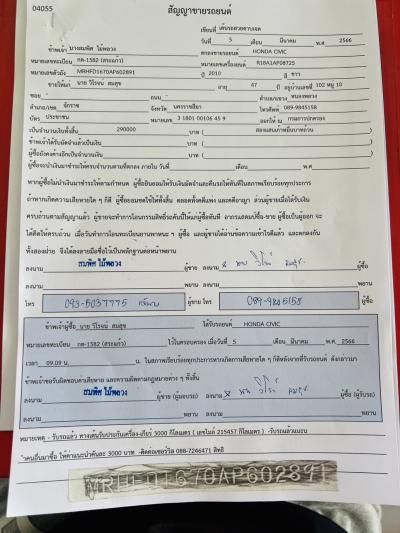 04055
สัญญาขายรถยนต์
เขียนที่ เต้นรถสวยตาบเจต
วันที่ 5 เดือน มีนาคม พ.ศ 2566
ข้าพเจ้า นางสมพิศ ไม้พลวง ตกลงขายรถยนต์ HONDA CIVIC
หมายเลขทะเบียน กด-1582 (สระแก้ว) หมายเลขเครื่องยนต์ R18A1AP08725
หมายเลขตัวถัง MRHFD1670AP602891 ปี 2010 สี ขาว
ขายให้แก่ นาย วิโรจน์ สมสุข อายุ 47 ปี อยู่บ้านเลขที่ 102 หมู่ 10
ซอย ถนน ตำบล/แขวง หนองพลวง
อำเภอ/เขต จักราช จังหวัด นครราชสีมา โทรศัพท์ 089-9845158
บัตร ประชาชน หมายเลข 3 1801 00106 45 9 ออกให้ ณ กรมการปกครอง
เป็นจำนวนเงินทั้งสิ้น 290000 บาท ( สองแสนเก้าหมื่นบาทถ้วน )
ข้าพเจ้าได้รับมัดจำแล้วเป็นเงิน บาท ( )
ผู้ซื้อยังคงค้างอีกเป็นจำนวนเงิน บาท ( )
ผู้ซื้อจะนำเงินมาชำระให้ครบจำนวนตามที่ตกลง ภายใน วันที่ เดือน พ.ศ
หากผู้ซื้อไม่นำเงินมาชำระตามกำหนด ผู้ซื้อยินยอมให้ริบเงินมัดจำและคืนรถให้ทันทีในสภาพเรียบร้อยทุกประการ
ถ้าหากเกิดความเสียหายใด ๆ ก็ดี ผู้ซื้อยอมชดใช้ให้ทั้งสิ้น ตลอดทั้งคดีแพ่ง และคดีอาญา ส่วนผู้ขายเมื่อได้รับเงิน
ครบถ้วนตามสัญญาแล้ว ผู้ขายจะทำการโอนกรรมสิทธิ์รถคันนี้ให้แก่ผู้ซื้อทันที อากรแสตมป์ซื้อ-ขาย ผู้ซื้อเป็นผู้ออก จะ
ได้ติดให้ครบถ้วน เมื่อวันทำการโอนทะเบียนยานพาหนะ ฯ ผู้ซื้อ และผู้ขายได้อ่านข้อความเข้าใจดีแล้ว และตกลงกัน
ทั้งสองฝ่าย จึงได้ลงลายมือชื่อไว้เป็นหลักฐานต่อหน้าพยาน
ลงนาม สมพิศ ไม้พลวง ผู้ขาย ลงนาม x นาย วิโรจน์ สมสุข ผู้ซื้อ
ลงนาม พยาน ลงนาม พยาน
โทร 093-5037775 ผู้ขาย โทร 089-9845158 ผู้ซื้อ
ข้าพเจ้าผู้ซื้อ นาย วิโรจน์ สมสุข ได้รับรถยนต์ HONDA CIVIC
หมายเลขทะเบียน กด-1582 (สระแก้ว) ไว้ในครอบครอง เมื่อวันที่ 5 เดือน มีนาคม พ.ศ 2566
เวลา 09.09 น. น. ในสภาพเรียบร้อยทุกประการหากเกิดการเสียหายใด ๆ ก็ดีหลังจากที่รับรถยนต์ ดังกล่าวมา
ข้าพเจ้าขอรับผิดชอบค่าเสียหาย และความผิดตามกฎหมายต่าง ๆ ทั้งสิ้น
ลงนาม สมพิศ ไม้พลวง ผู้ขาย (ผู้มอบรถ) ลงนาม x นาย วิโรจน์ สมสุข ผู้ซื้อ (ผู้รับรถ)
ลงนาม พยาน ลงนาม พยาน
หมายเหตุ - รับรถแล้ว ทางเต้นรับประกันเครื่อง-เกียร์ 3000 กิโลเมตร ( เลขไมล์ 215457 กิโลเมตร ) -รับรถแล้วแนะนำ
คนอื่นมาซื้อ ให้ค่าแนะนำคันละ 3000 บาท -ติดต่อเซอร์วิส 088-7246471 สิทธิ
MRHFD1670AP602891